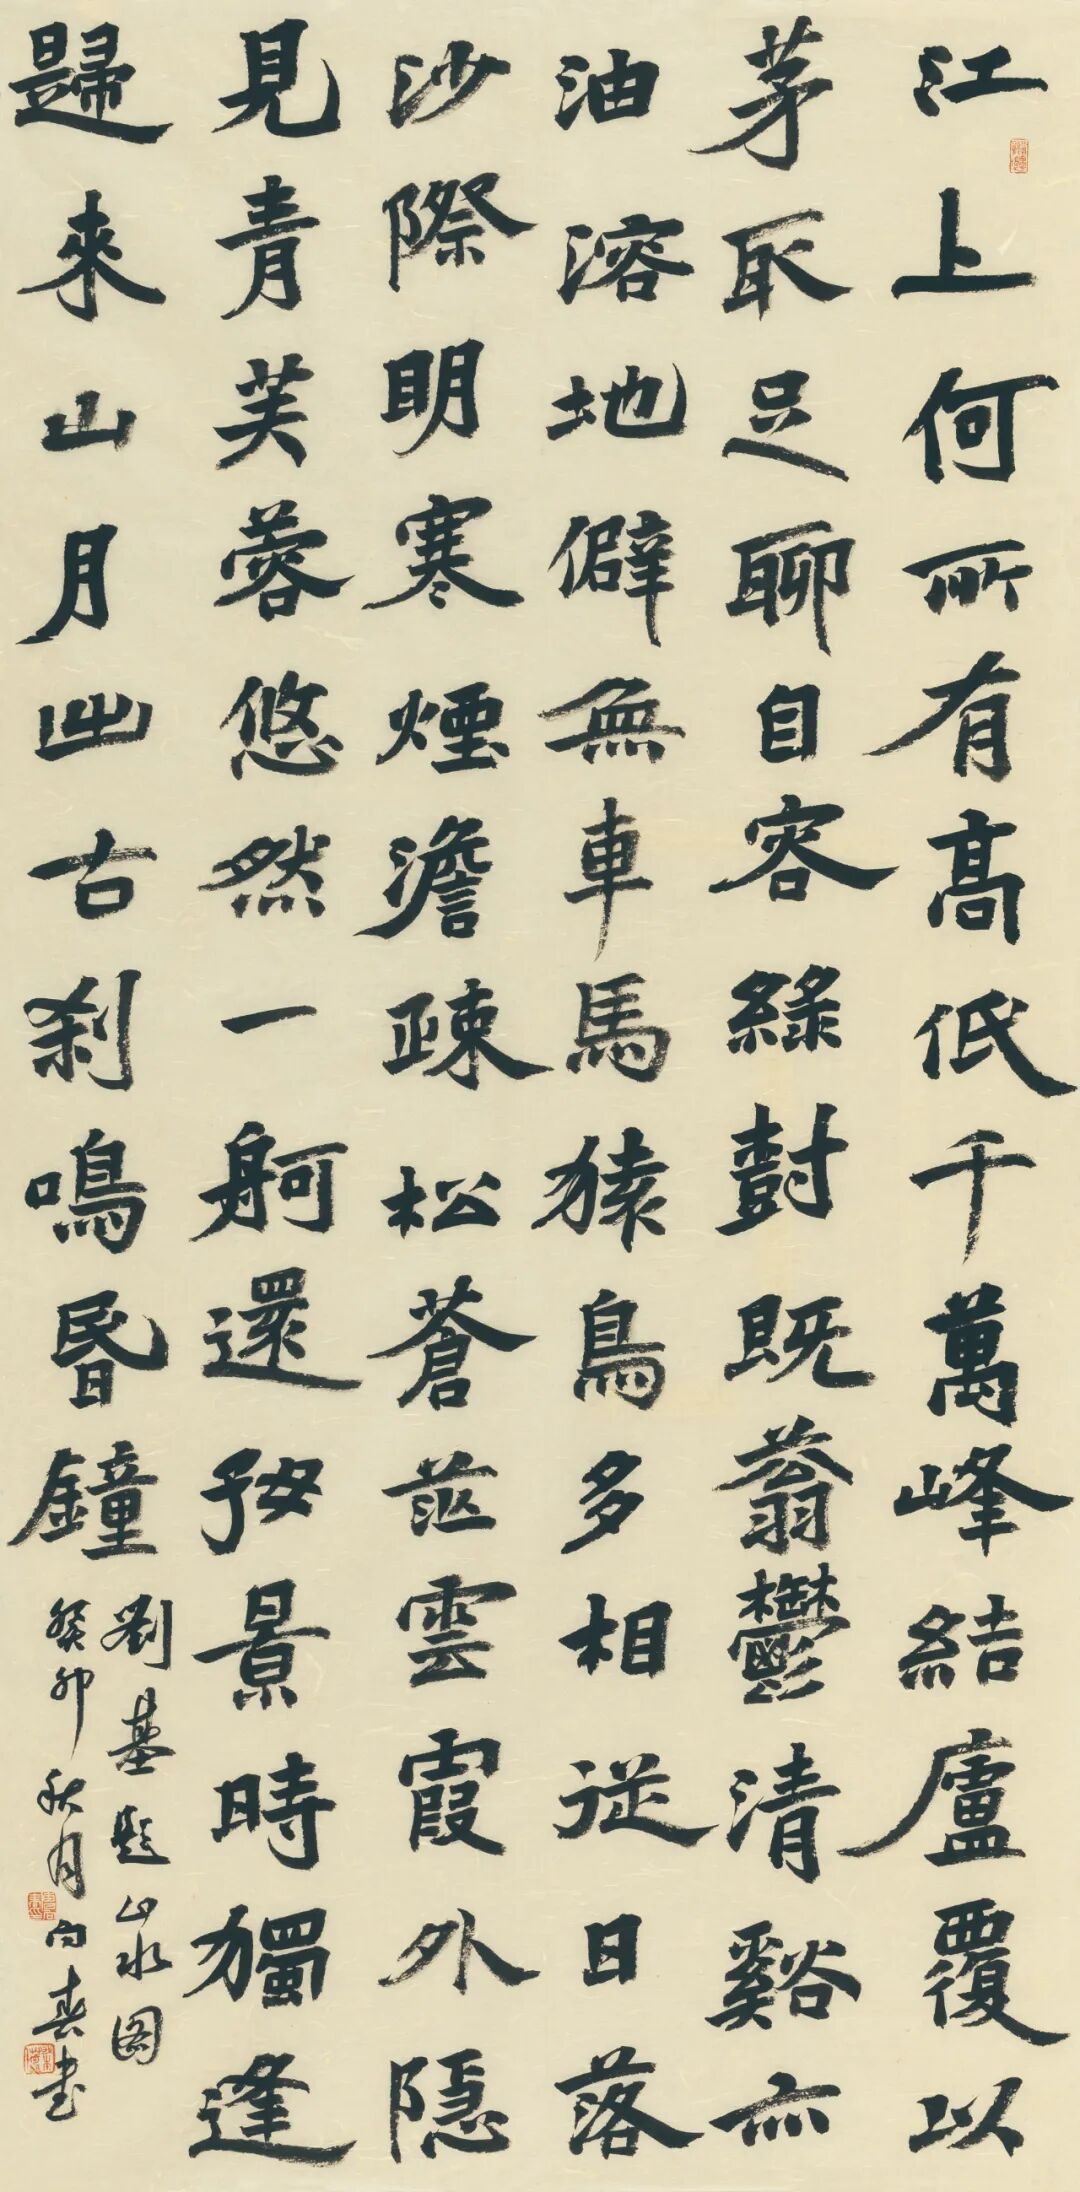 江上何所有高低千萬峰結廬覆以
茅取足聊自容綠尌既蓊鬱清谿亦
油溶地僻無車馬猿鳥多相從日落
沙際明寒煙澹疎松蒼茫雲霞外隱
見青芙蓉悠然一舸還好景時獨逢
歸來山月出古刹鳴昏鐘
劉基題山水图
癸卯秋月向春书